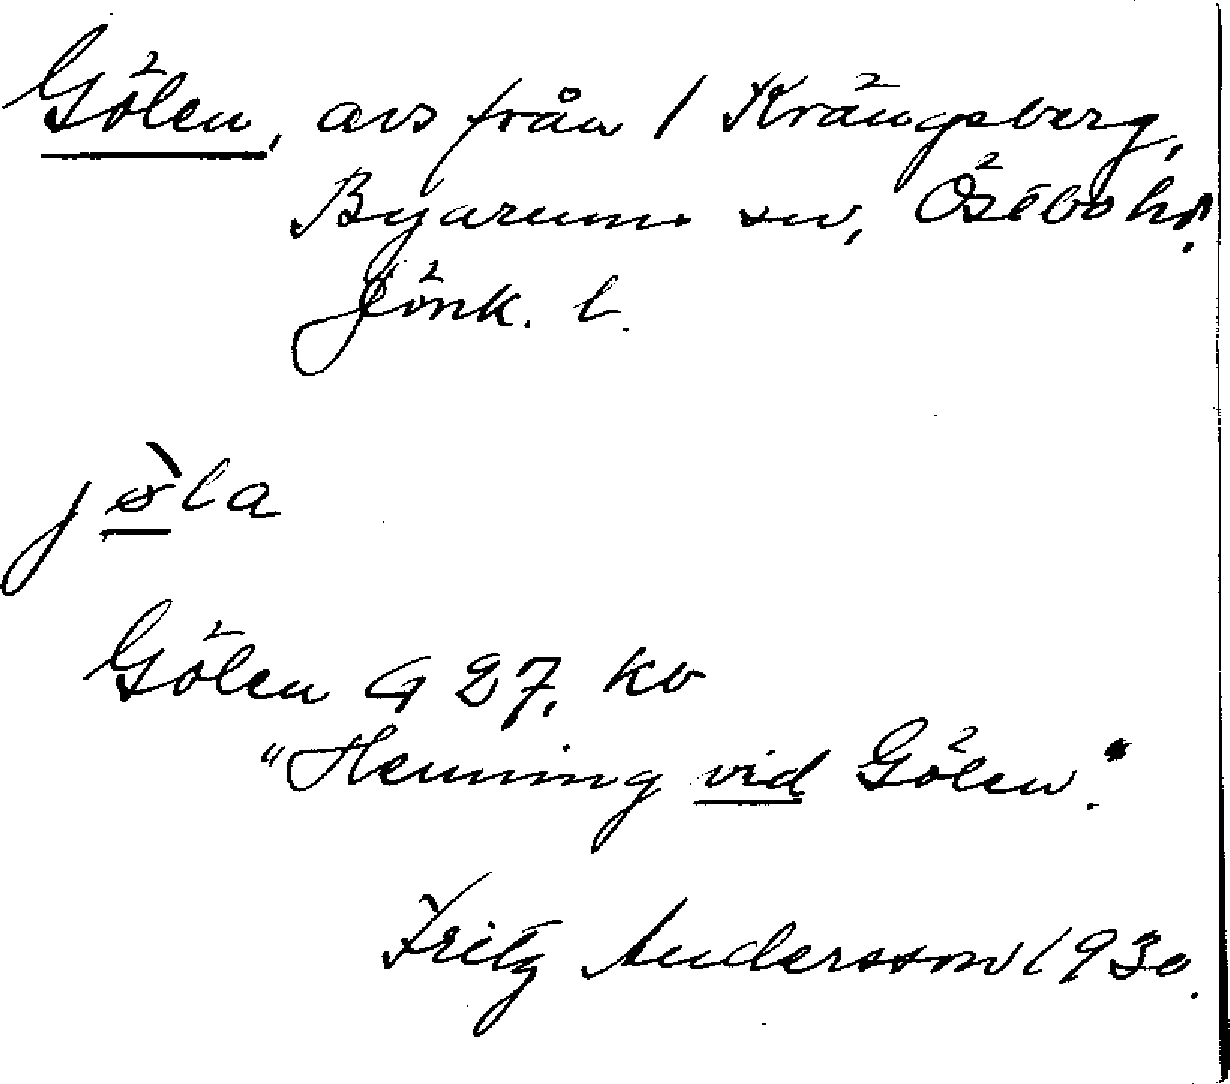 Gölen, avs från 1 Krängsberg,
Byarums sn, Östbo hd.
Jönk. l.
jöla
Gölen G 27, kv
"Henning vid Gölen".
Fritz Andersson 1930.